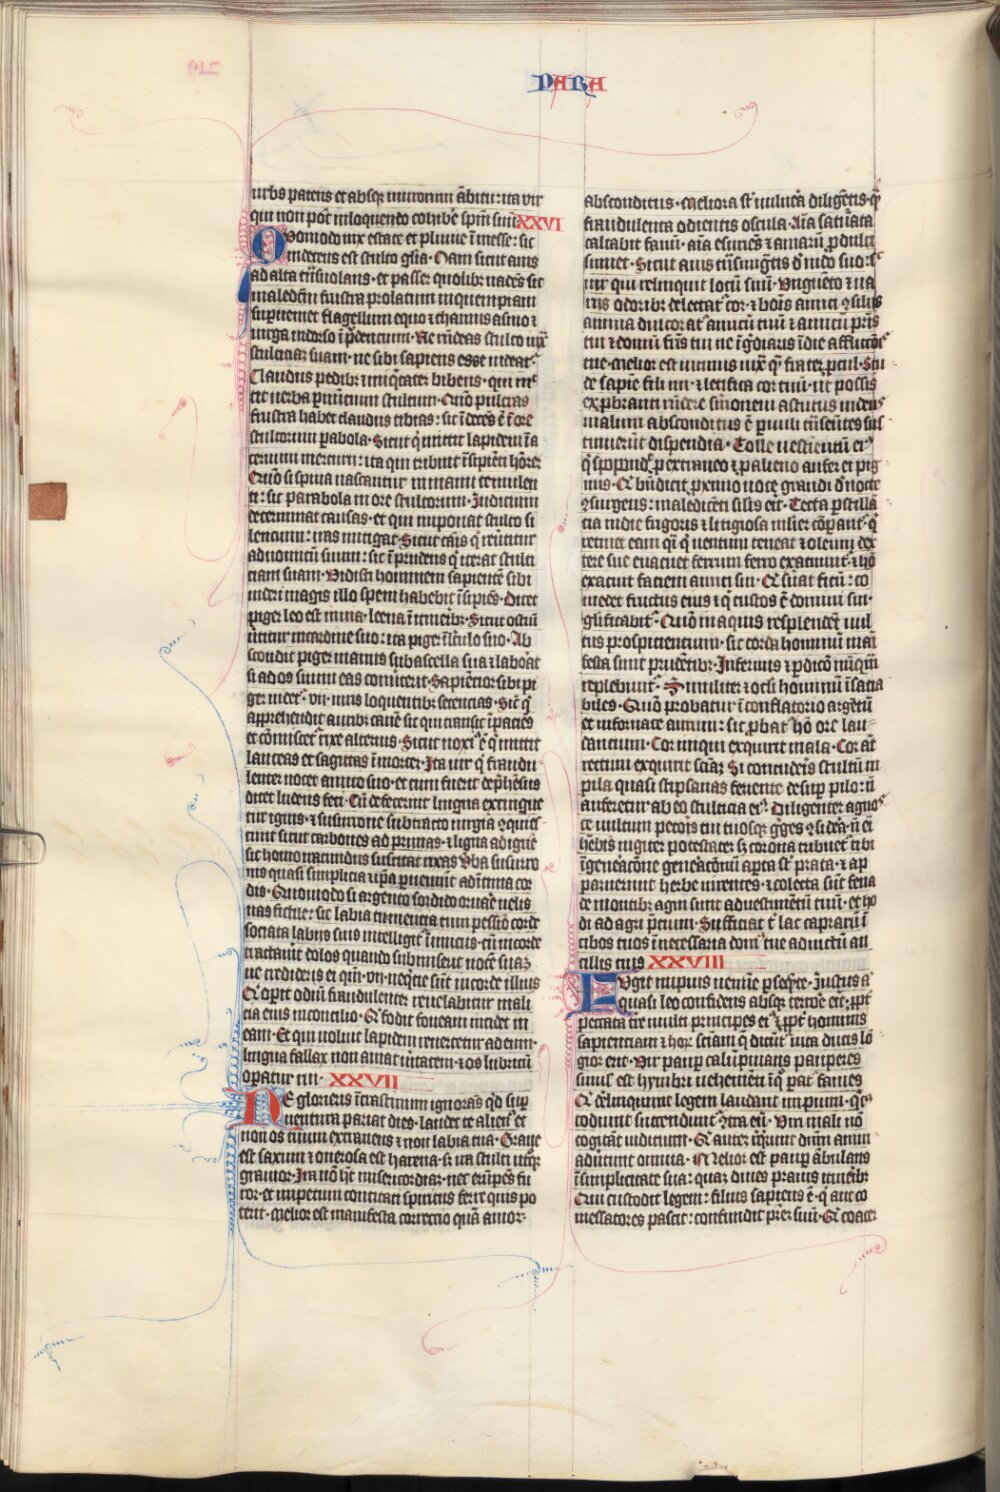 PARA
urbs patens et absq; murorum ābitu: ita vir
qui non pōt in loquendo cohibē spm̄ suū. XXVI
Quomodo nix estate et pluuie ī messe: sic
indecens est stulto gl̄ia. Nam sicut auis
ad alta trāsuolans. et passer quolibꝫ uadēs sic
maledc̄m frustra prolatum in quempiam
supueniet. flagellum equo ⁊ chamus asino ⁊
uirga in dorso īpͥdentium. Ne rn̄deas stulto iux̄
stulticiaꝫ suam. ne sibi sapiens esse uideatᷣ.
Claudus pedibꝫ ⁊ iniq̄tatē bibens. qui mͥt
tit uerba p nūtium stultum. Quō pulcras
frustra habet claudus tibias: sic īdecēs ē ī ore
stultorum pabola. Sicut qͥ mittit lapidem ī a
ceruum mercurii: ita qui tribuit īsipiēti hōreꝫ
Quō si spina nascatur in manu temulen
ti: sic parabola in ore stultorum. Iudicium
determinat causas. et qui imponit stulto si
lencium: iras mitigat. Sicut canis qͥ reūtitur
ad uomitū suum: sic īprudens qͥ iterat stulti
ciam suam. Vidisti hominem sapientē sibi
uideri magis illo spem habebit īsipiēs. Dicit
piger leo est in uia. leena ī itineribꝫ. Sicut ostiū
ūtitur in cardine suo: ita piger ī lc̄ulo suo. Ab
scondit piger manus sub ascella sua ⁊ laborat
si ad os suum eas conūterit. Sapiencior sibi pi
ger uidetᷣ. vii. uiris loquentibꝫ sentencias. Sic̄ qͥ
apprehendit auribꝫ canē sic qui transit īpaciēs
et cōmiscetᷣ rixe alterius. Sicut noxiꝰ ē qͥ mittit
lanceas et sagittas ī mortē. Ita uir qͥ fraudu
lenter nocet amico suo. et cum fuerit depͥhēsus
dicet ludens feci. Cū defecerint lingna extingue
tur ignis. ⁊ susurrone subtracto iurgia ꝯquies
cunt sicut carbones ad prunas. ⁊ ligna ad ignē
sic homo iracundus suscitat rixas. Vba susurro
nis quasi simplicia ⁊ ip̄a pueniūt ad ītima cor
dis. Quomodo si argento sordido ornare uelis
uas fictile: sic labia tumentia cum pessīo corde
sociata. labiis suis intelligitᷣ inimicus. cū in corde
tractauīt dolos quando submiserit uocē suaꝫ
ne credideris ei qm̄. vii. neq̄tie sūt in corde illius
Qͥ opit odiū fraudulenter reuelabitur mali
cia eius in concilio. Qͥ fodit foueam incidet in
eam. Et qui uoluit lapidem reuertetur ad eum.
lingua fallax non amat ūitatem. ⁊ os lubricū
opatur rui. XXVII
Ne glorieris ī crastinum ignoras qͥd sup
uentura pariat dies. laudet te alienꝰ et
non os tuum extraneus ⁊ non labia tua. Graue
est saxum ⁊ onerosa est harena. sꝫ ira stulti utq;
grauior. Ira nō hꝫ misericordiaꝫ. nec erūpēs fu
ror. et impetum concitati spiritus ferre quis po
terit. Melior est manifesta correctio quā amor
absconditus. Meliora sͭ uulnera diligētis. qͣꝫ
fraudulenta odientis oscula. Aīa saturata
calcabit fauū. aīa esuriēs ⁊ amarū ꝓ dulci
sumet. Sicut auis trāsmigrās d̄ nido suo: sic
uir qui relinquit locū suū. Vnguēto ⁊ ua
riis odoribꝫ delectatᷣ cor. ⁊ bōis amici ꝯsiliis
anima dulcoratᷣ. amicū tuū ⁊ amicū pr̄is
tui ⁊ domū fr̄is tui ne īgrediaris ī die afflictōis
tue. Melior est uicinus iux̄ qͣꝫ frater pcul. Stu
de sapiē fili mi. ⁊ letifica cor tuū. ut possis
exprobranti rn̄dere sermonem. astutus uidens
malum absconditus ē puuli trāseūtes sus
tinuerūt dispendia. Tolle uestientū eiꝰ
qͥ spopōdit p extraneo ⁊ p alieno aufer ei pig
nus. Qͥ bn̄dicit pximo uoce grandi d̄ nocte
ꝯsurgens: maledicēti silis erit. Tecta pstillā
cia in die frigoris ⁊ litigiosa mulier cōpantᷣ. qͥ
retinet eam qͣi qͥ uentum teneat ⁊ oleum dex
tere sue euacuet. ferrum ferro exacuitᷣ. ⁊ hō
exacuit faciem amici sui. Qͥ ſuat ficū: co
medet fructus eius ⁊ qͥ custos ē domini sui.
glificabitᷣ. Quō in aquis resplendent uul
tus prospicientium. sic corda hominū mani
festa sunt prudētibꝫ. Infernus ⁊ pdicō nūquā
replebuntᷣ. Similiter ⁊ ocli hominū īsacia
biles. Quō probatur ī conflatorio argētū
et in fornace aurum: sic pbatᷣ hō ore lau
dantium. Cor iniqui exquirit mala. Cor aūt
rectum exquirit sciaꝫ. Si contuderis stultū in
pila quasi tipsanas feriente desup pilo: nō
auferetur ab eo stulticia eiꝰ. Diligenter agnos
ce uultum pecoris tui tuosq; greges ꝯsidera. nō ei
hēbis iugiter potestatē. sꝫ corona tribuetᷣ tibi
ī generacōne generacōnū. aperta sͭ prata. ⁊ ap
paruerunt herbe uirentes. ⁊ collecta sūt fena
de montibꝫ. agni sunt ad uestimētū tuū. et ho
di ad agri pretium. Sufficiat tͥ lac caprarū ī
cibos tuos ī necessaria domꝰ tue ad uictū an
cillis tuis. XXVIII
Fugit impius nemine psequēte. Iustus aūt
quasi leo confidens absq; terrore erit. ppt̄
peccata t̄re multi principes eiꝰ ⁊ ppt̄ hominis
sapientiam ⁊ hoꝝ sciam q̄ dicūtᷣ uita ducis lō
gior erit. Vir paup calūpnians pauperes
similis est hymbri uehemēti ī qͦ patᷣ fames
Qͥ derelinquunt legem laudant impium. qͥ cus
todiunt succendunt ꝯtra eū. Viri mali nō
cogitāt iudicium. Qͥ autē īquirūt dn̄m anim
aduertunt omnia. Melior est paup ābulans
ī simplicitate sua: quaꝫ diues prauis itineribꝫ
Qui custodit legem: filius sapiens ē. qͥ aūt co
messatores pascit: confundit pr̄em suū. Qͥ coacer